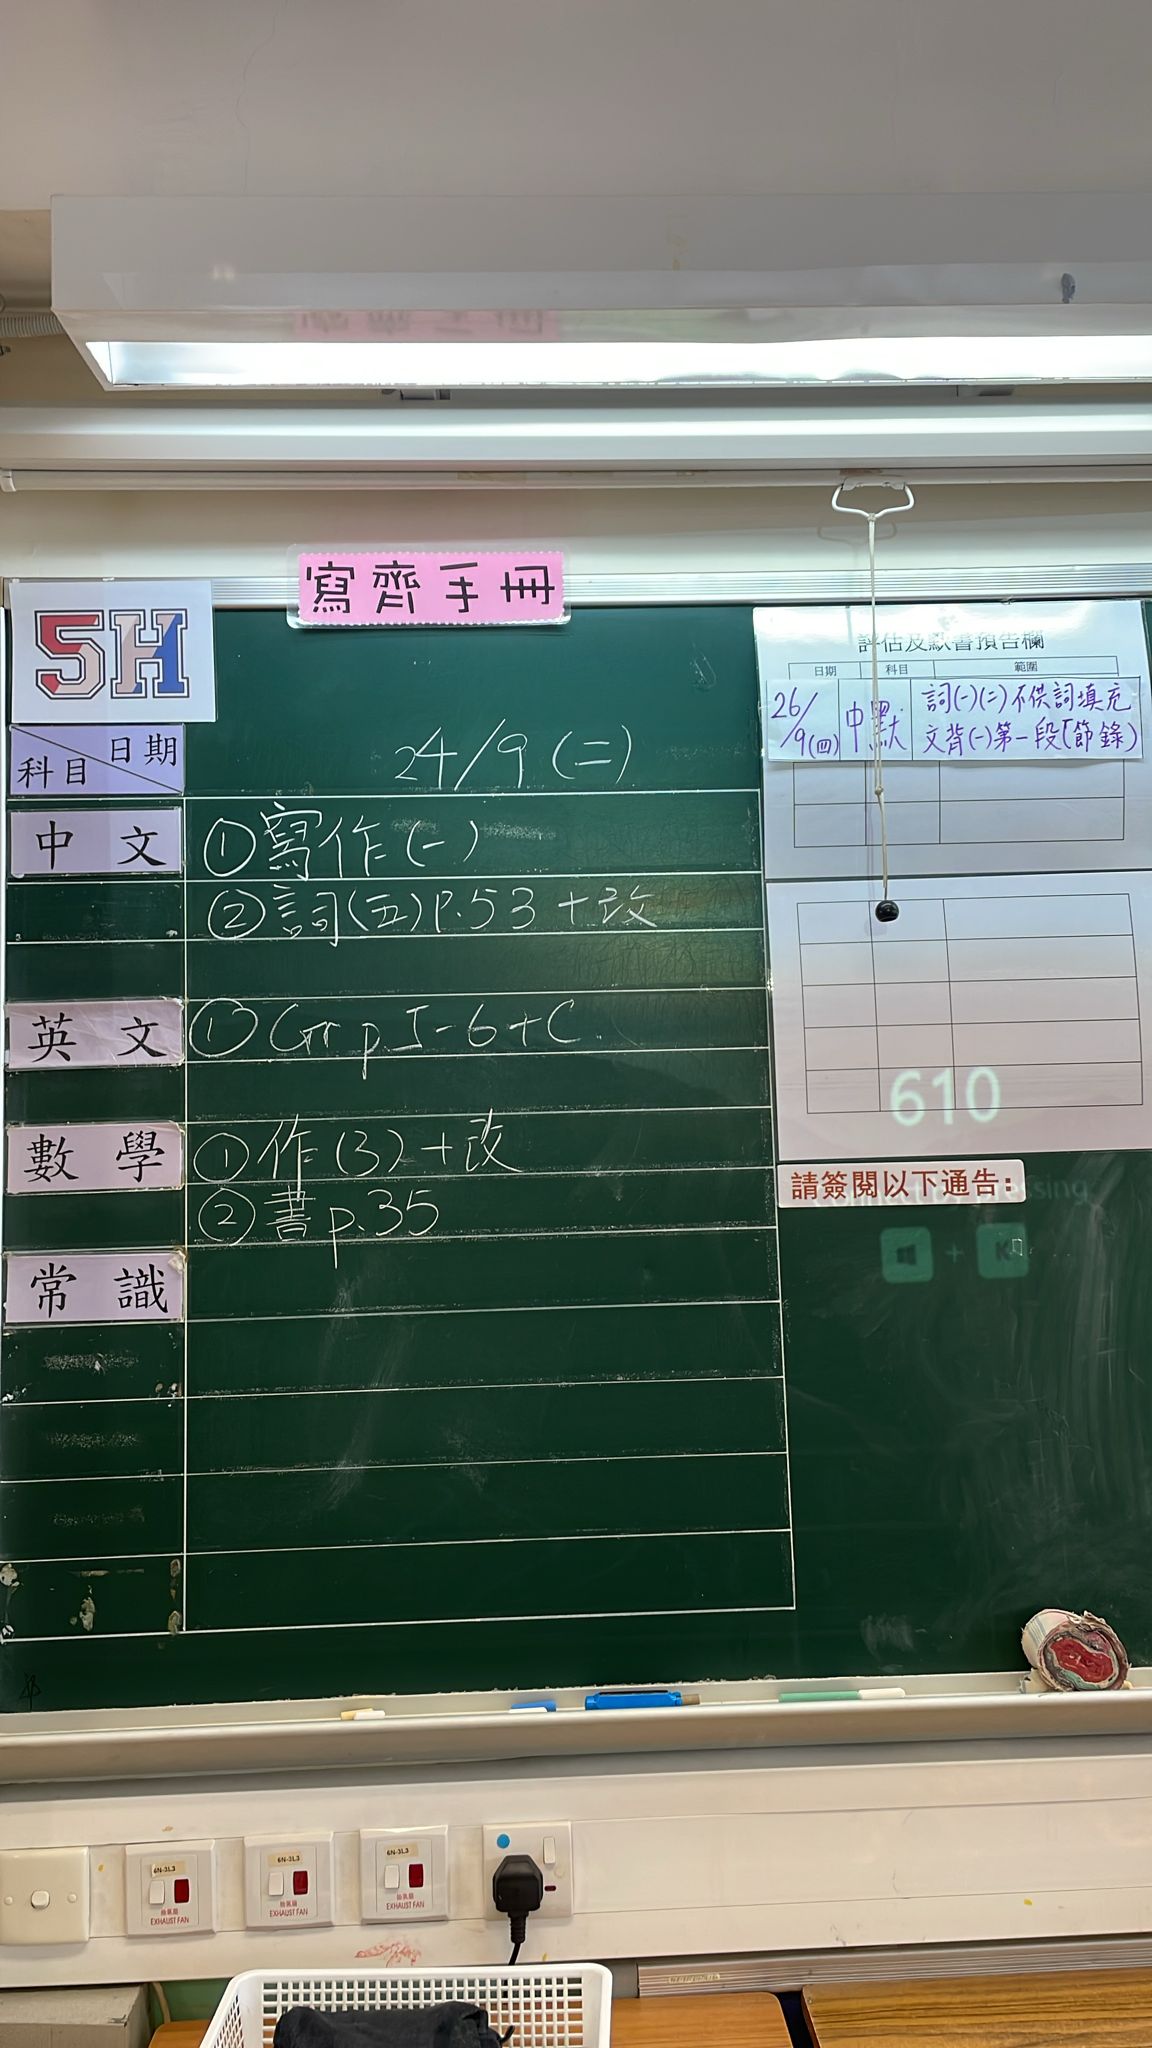 寫齊手冊
5H
日期
科目
24/9(二)
中文
①寫作(一)
②詞(五)P.53+改
英文
①Gr p 5-6+C
數學
①作(3)+改
②書p.35
常識
評估及默書預告欄
日期 科目 範圍
26/9(四) 中默 詞(一)(二)不供詞填充
文背(一)第一段(節錄)
610
請簽閱以下通告:
+ K
6N-3L3
抽氣扇
EXHAUST FAN
6N-3L3
抽氣扇
EXHAUST FAN
6N-3L3
抽氣扇
EXHAUST FAN